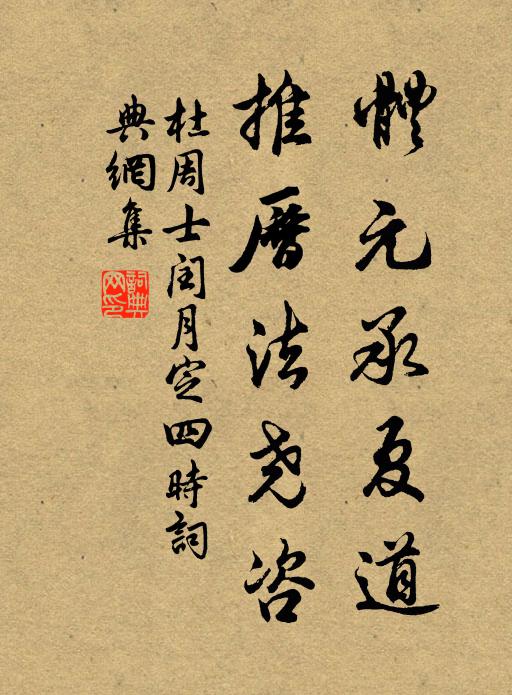 體元承夏道
推曆法尧咨
杜周士闰月定四時詞
典網集
詞典网印